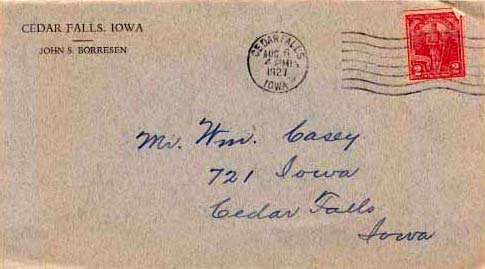 CEDAR FALLS, IOWA
JOHN S. BORRESEN
CEDAR FALLS
AUG 6
4 PM
1927
IOWA
2 2
Mr. Wm. Casey
721 Iowa
Cedar Falls
Iowa